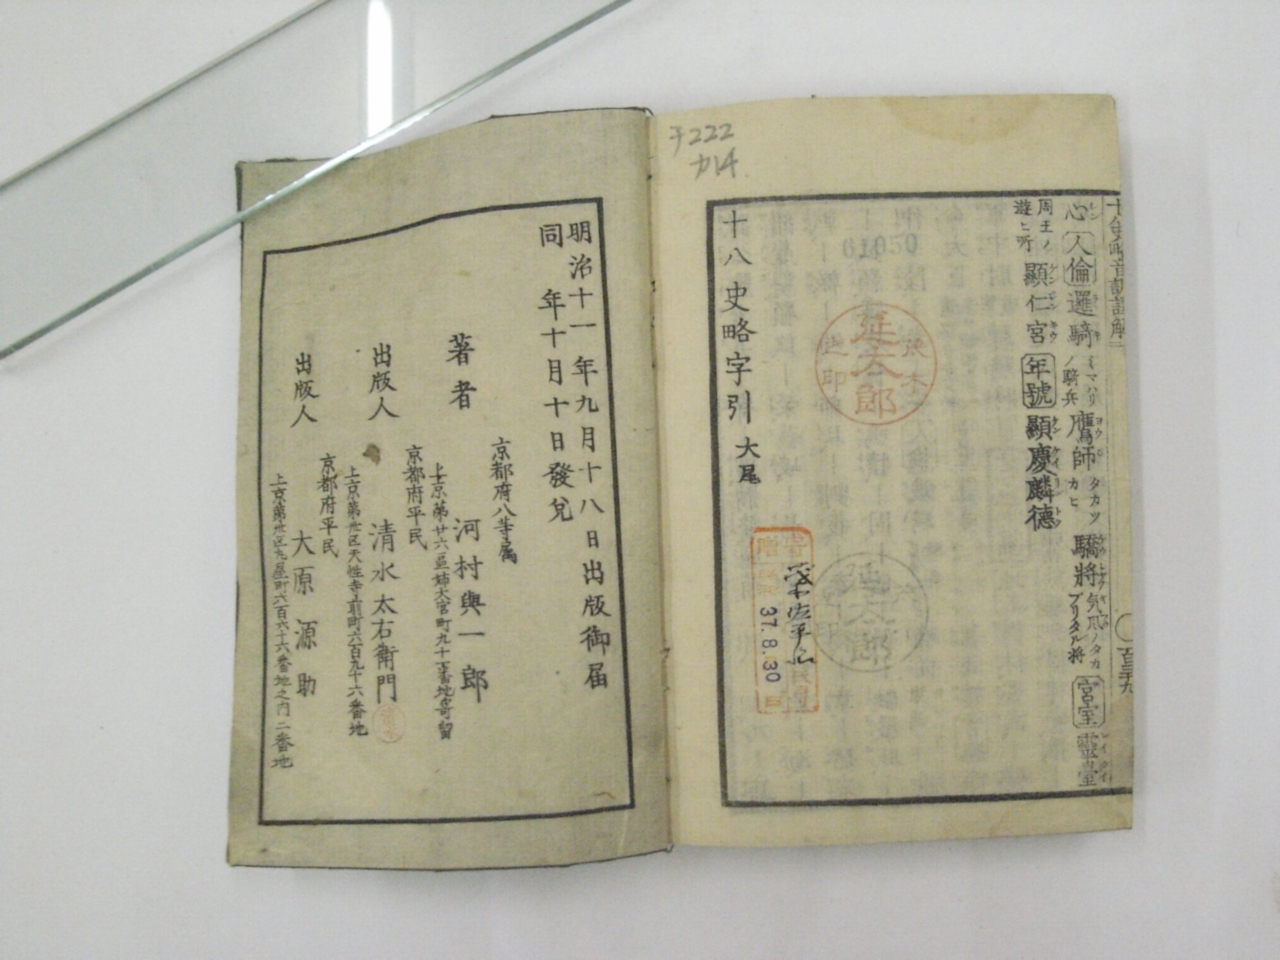 ヲ222
カ14
心 人倫 邏騎 ノ騎兵 鷹師 タカカヒ 驕將 宮室 靈臺
周王ノ遊ヒ所 顯仁宮 年號 顯慶 麟德
十八史略字引大尾
61050
延太郎
37.8.30
明治十一年九月十八日出版御届
同年十月十日發兌
京都府八等属
著者 河村與一郎
上京第廿六區姉大宮町九十一番地寄留
京都府平民
出版人 清水太右衛門
上京第卅区天性寺前町六百九十六番地
京都府平民
出版人 大原源助
上京第卅区九屋町六百六十六番地之内二番地